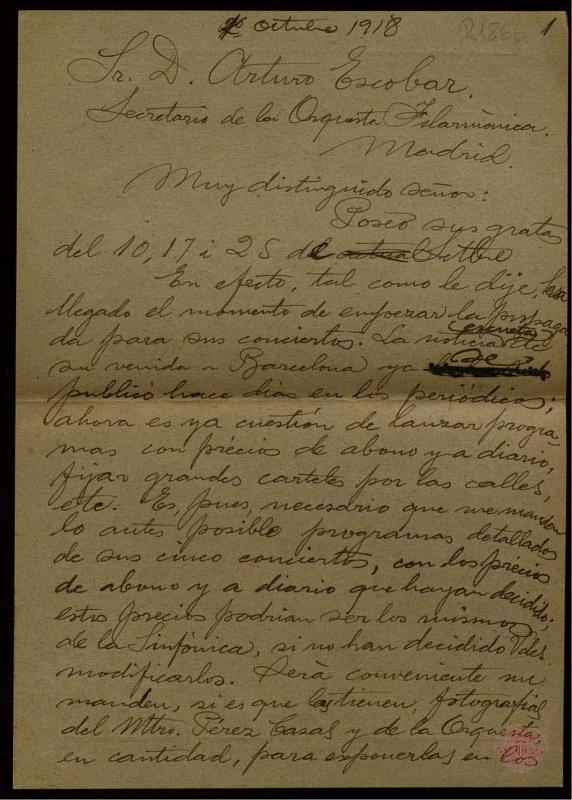 Octubre 1918
R.1866
1
Sr. D. Arturo Escobar.
Secretario de la Orquesta Filarmònica.
Madrid.
Muy distinguido señor:
Poseo sus gratas
del 10, 17 i 25 de Setbre
En efecto, tal como le dije, ha
llegado el momento de empezar la propagan
da para sus conciertos. La noticia escueta de
su venida a Barcelona ya se
publicó hace días en los periódicos;
ahora es ya cuestión de lanzar progra-
mas con précios de abono y a diario,
fijar grandes carteles por las calles,
etc. Es, pues, necesario que me manden
lo antes posible programas detallados
de sus cinco conciertos, con los precios
de abono y a diario que hayan decidido;
estos precios podrian ser los mismos
de la Sinfónica, si no han decidido Vdes.
modificarlos. Será conveniente me
manden, si es que las tienen, fotografias
del Mtro. Pérez Casas y de la Orquesta,
en cantidad, para exponerlas en los